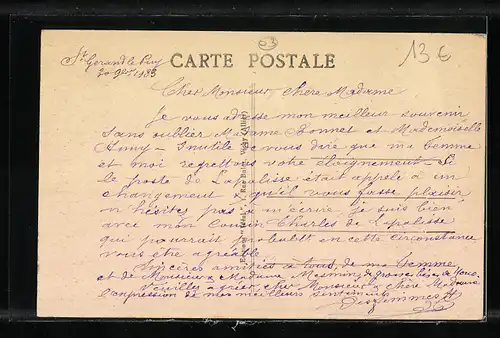 St Gerand le Puy
CARTE POSTALE
03
13 €
Cher Monsieur, chère Madame
Je vous adresse mon meilleur souvenir
sans oublier Madame Bonnet et Mademoiselle
Inutile de vous dire que ma femme
et moi regrettons votre éloignement. Si
le poste de Lapalisse était appelé à un
changement qu'il vous fasse plaisir
n'hésitez pas à m'écrire je suis bien
avec mon cousin Charles de Lapalisse
qui pourrait probablt en cette circonstance
vous être agréable
Sincères amitiés à tous, de ma femme
et de Monsieur & Madame
Veuillez agréer, cher Monsieur & chère Madame
l'expression de mes meilleurs sentiments